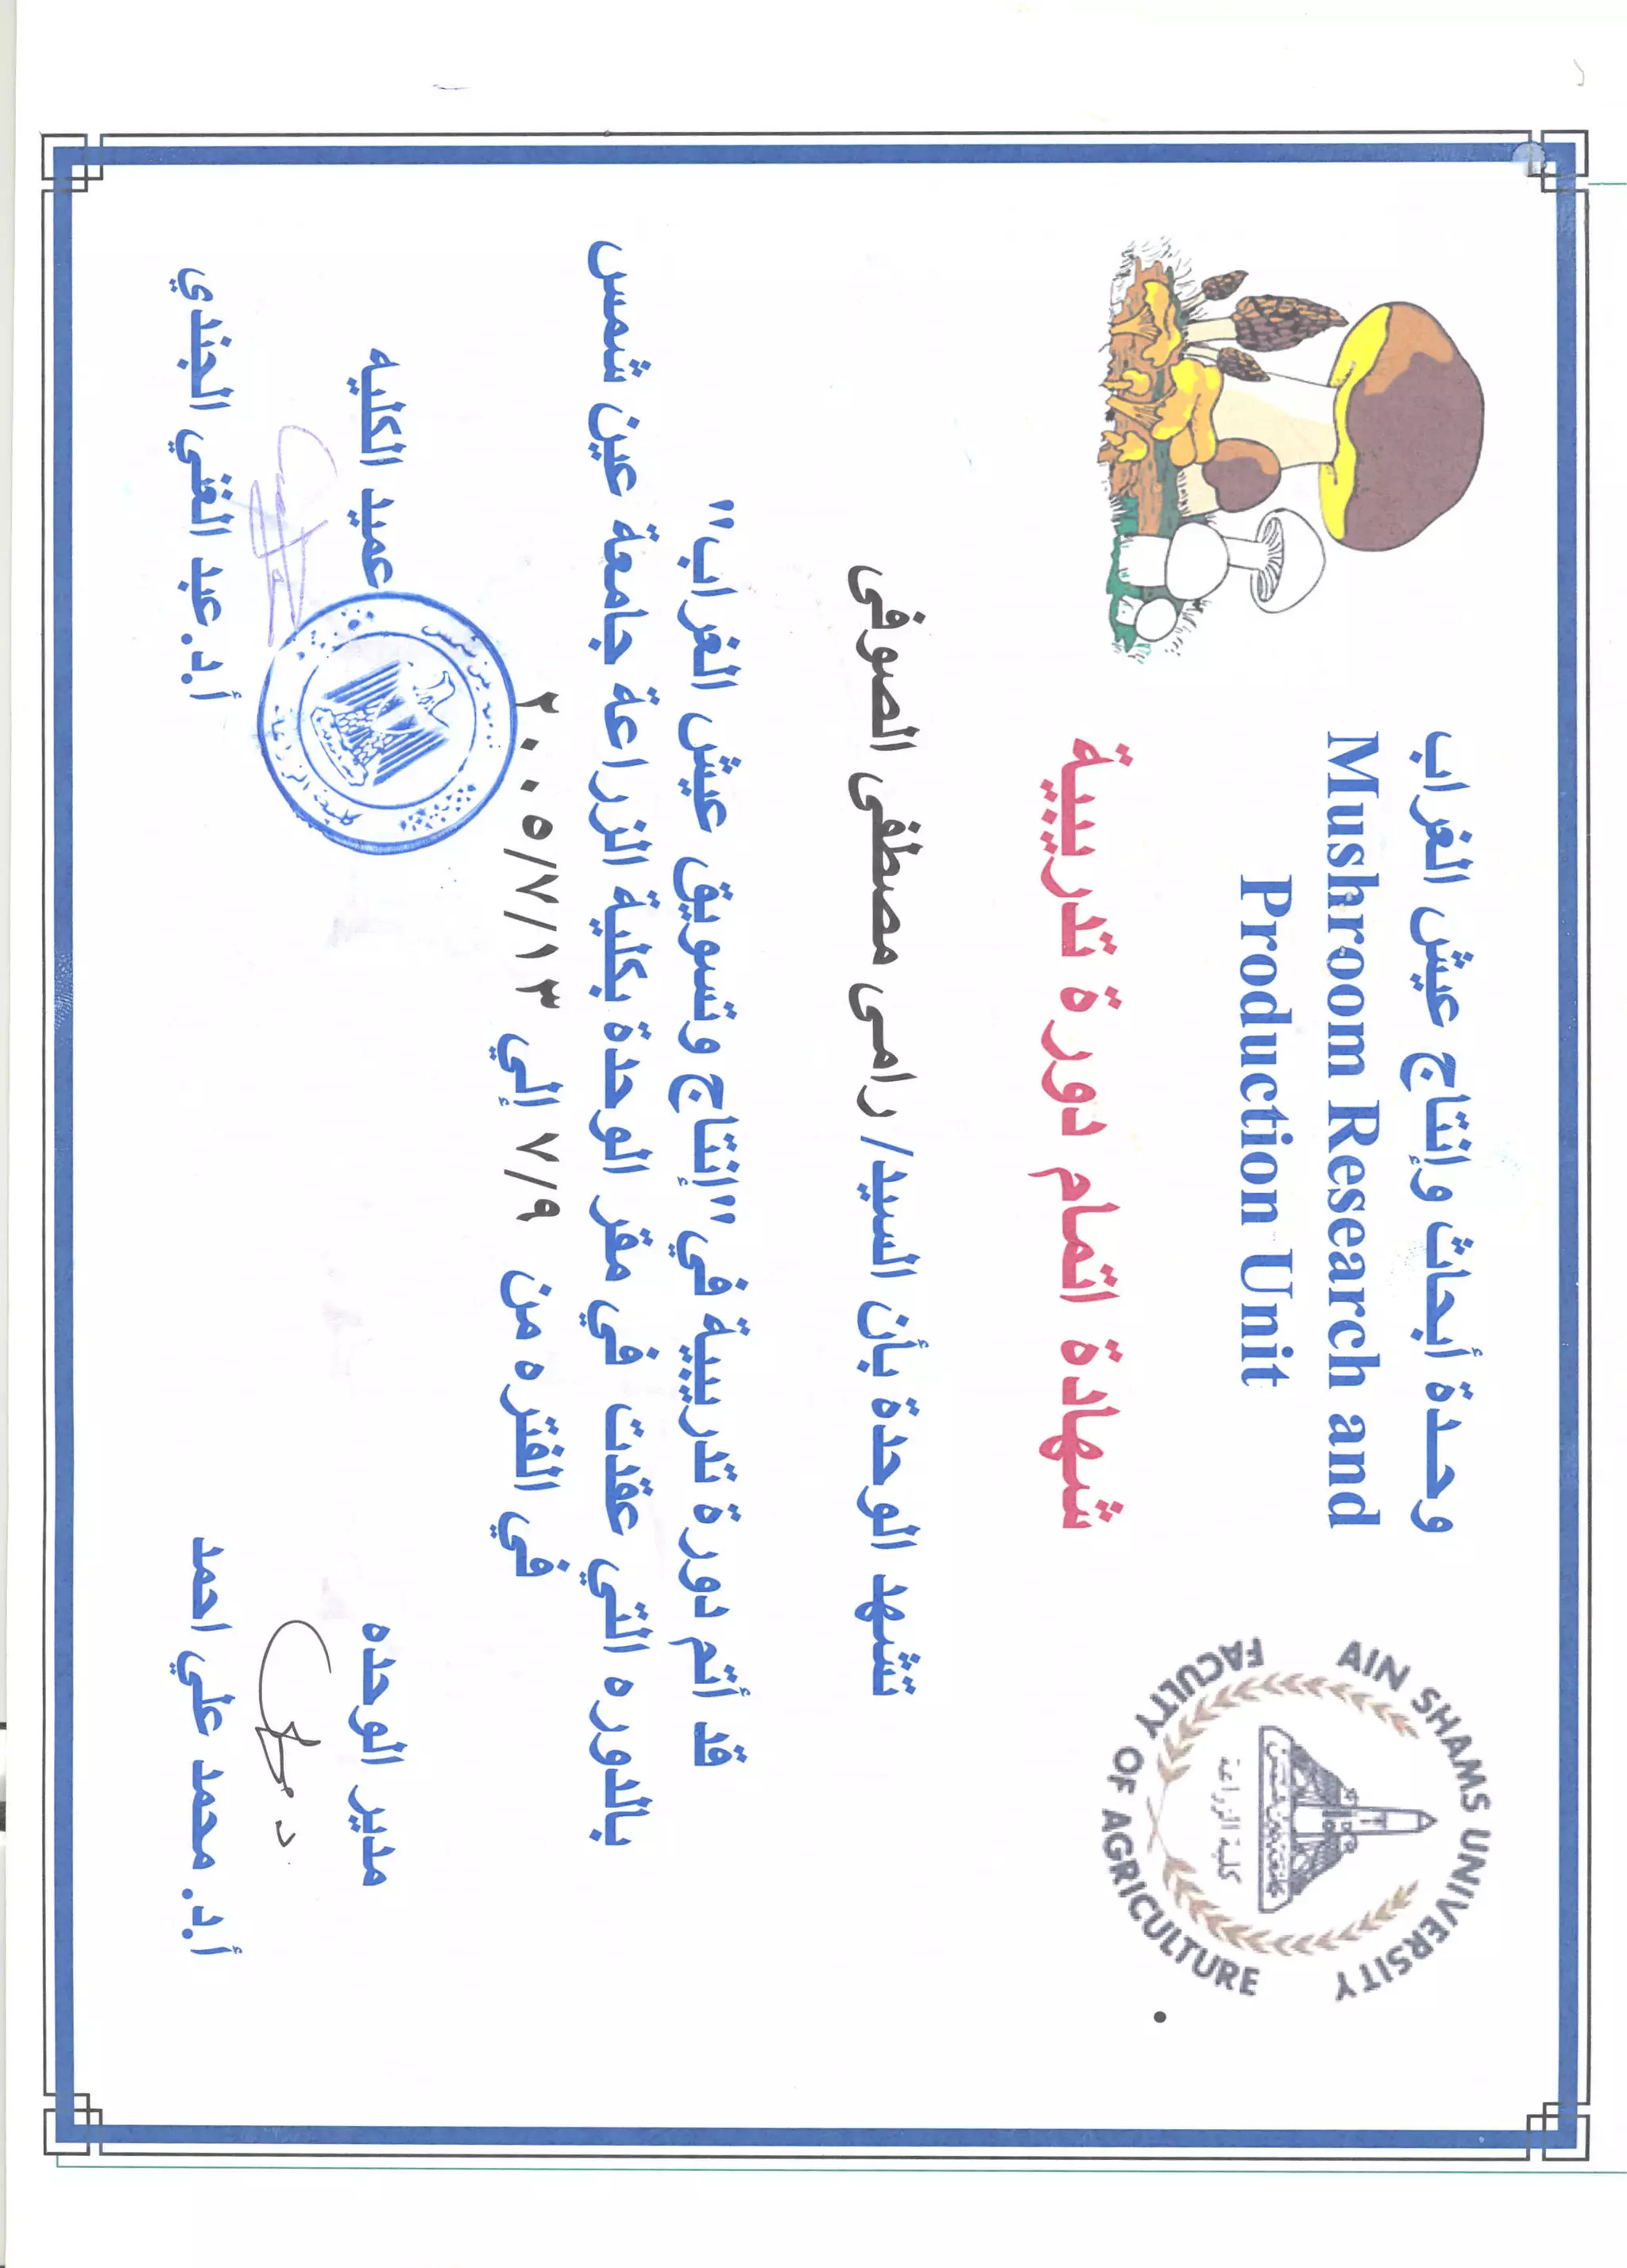 وحدة أبحاث وإنتاج عيش الغراب
Mushroom Research and
Production Unit
AIN SHAMS UNIVERSITY
FACULTY OF AGRICULTURE
كلية الزراعة
شهادة اتمام دورة تدريبية
تشهد الوحدة بأن السيد/ رامى مصطفى الصوفى
قد أتم دورة تدريبية في "إنتاج وتسويق عيش الغراب"
بالدوره التي عقدت في مقر الوحدة بكلية الزراعة جامعة عين شمس
في الفتره من ٧/٩ إلي ٢٠٠٥/٧/١٣
مدير الوحده
عميد الكليه
أ.د. محمد علي احمد
أ.د. عبد الغني الجندي